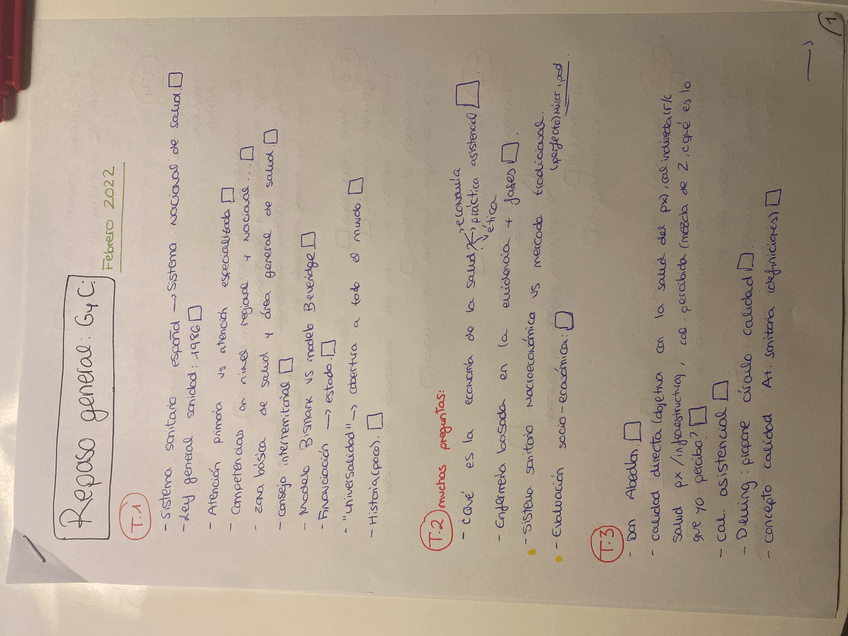 Repaso general: G y C:
Febrero 2022
T.1
- Sistema sanitario español → Sistema Nacional de Salud.
- Ley general sanidad: 1986
- Atención primaria vs atención especializada
- Competencias en nivel regional y nacional...
- Zona básica de salud y área general de salud.
- Consejo interterritorial.
- Modelo Bismark vs modelo Beveridge
- Financiación → estado.
- "Universalidad" → cobertura a todo el mundo.
- Historia (poco).
T.2 muchas preguntas:
- Qué es la economía de la salud, economía
práctica asistencial
ética
- Enfermería basada en la evidencia + fases
- Sistema sanitario macroeconómico vs mercado tradicional
(perfecto)
- Evaluación socio-económica:
T.3
- Don Abedian.
- calidad directa (objetiva con la salud del px), cal indirecta (r/c
salud px / infraestructura), cal percibida (mezcla de 2, ¿qué es lo
que yo percibo?
- Cal. asistencial
- Deming: propone círculo calidad
- concepto calidad At. sanitaria (definiciones)
1